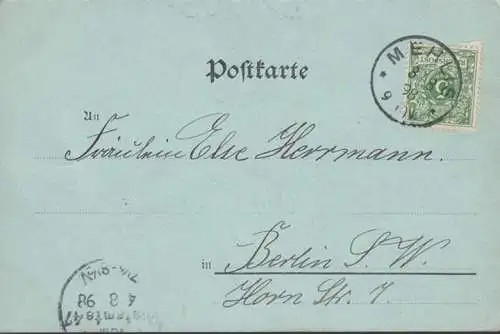 Postkarte
An
Fräulein Else Herrmann.
in Berlin S. W.
Horn Str. 7.
4 8 98